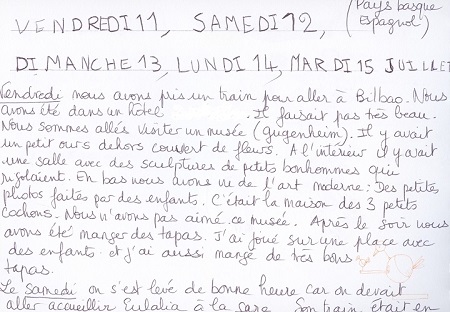 VENDREDI 11, SAMEDI 12, (Pays basque Espagnol)
DIMANCHE 13, LUNDI 14, MARDI 15 JUILLET
Vendredi nous avons pris un train pour aller à Bilbao. Nous
avons été dans un hôtel . Il faisait pas très beau.
Nous sommes allés visiter un musée (gugenheim). Il y avait
un petit ours dehors couvert de fleurs. A l'intérieur il y avait
une salle avec des sculptures de petits bonhommes qui
rigolaient. En bas nous avons vu de l'art moderne : Des petites
photos faites par des enfants. C'était la maison des 3 petits
cochons. Nous n'avons pas aimé ce musée. Après le soir nous
avons été manger des tapas. J'ai joué sur une place avec
des enfants et j'ai aussi mangé de très bons
tapas.
Le samedi on s'est levé de bonne heure car on devait
aller accueillir Eulalia à la gare. Son train était en